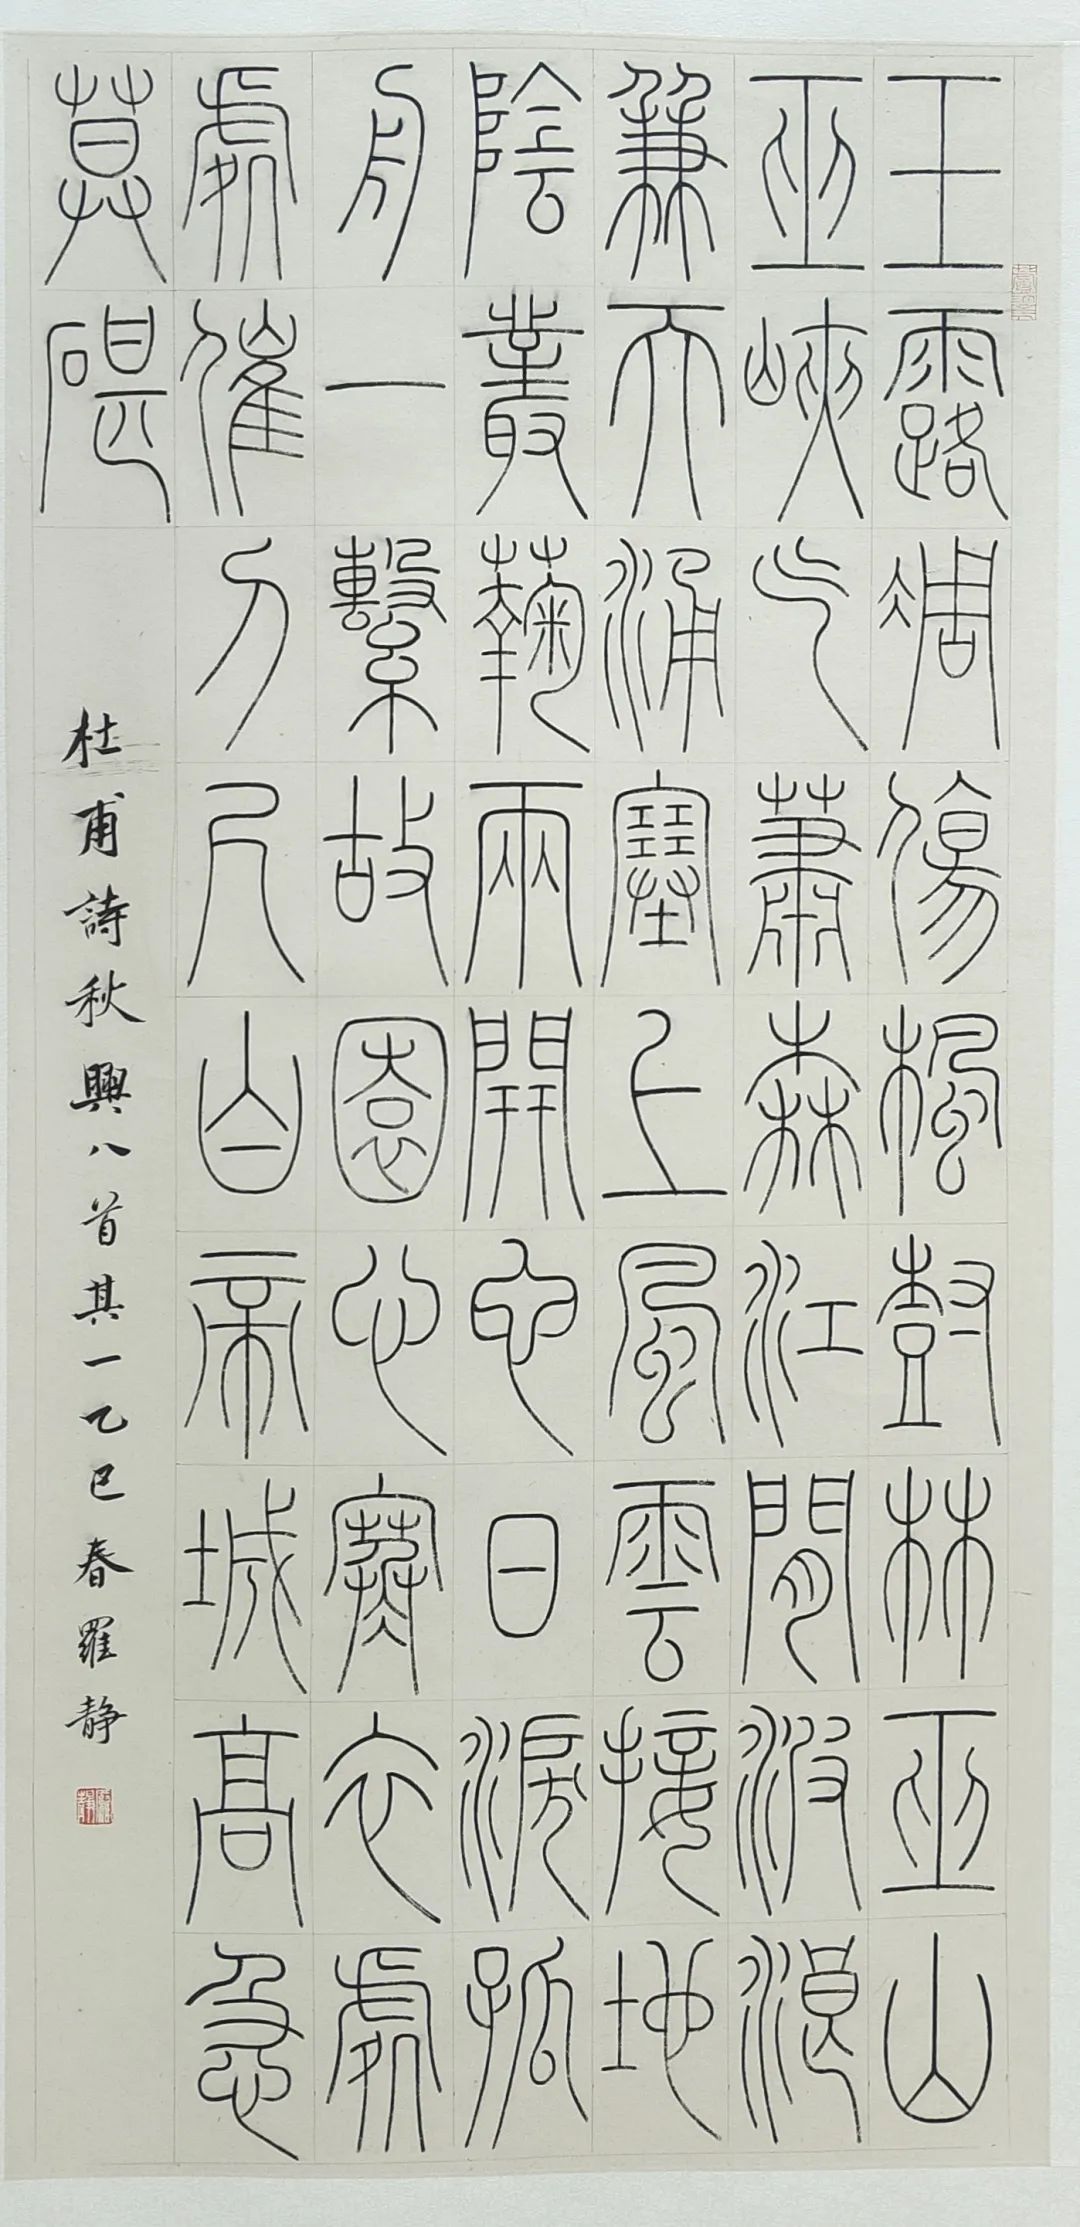 玉露凋傷楓尌林巫山
巫峽气蕭森江間波浪
兼天涌塞上風雲接地
陰叢蘜兩開它日淚孤
舟一繫故園心寒衣處
處催刀尺白帝城高急
莫碪
杜甫詩秋興八首其一乙巳春羅静